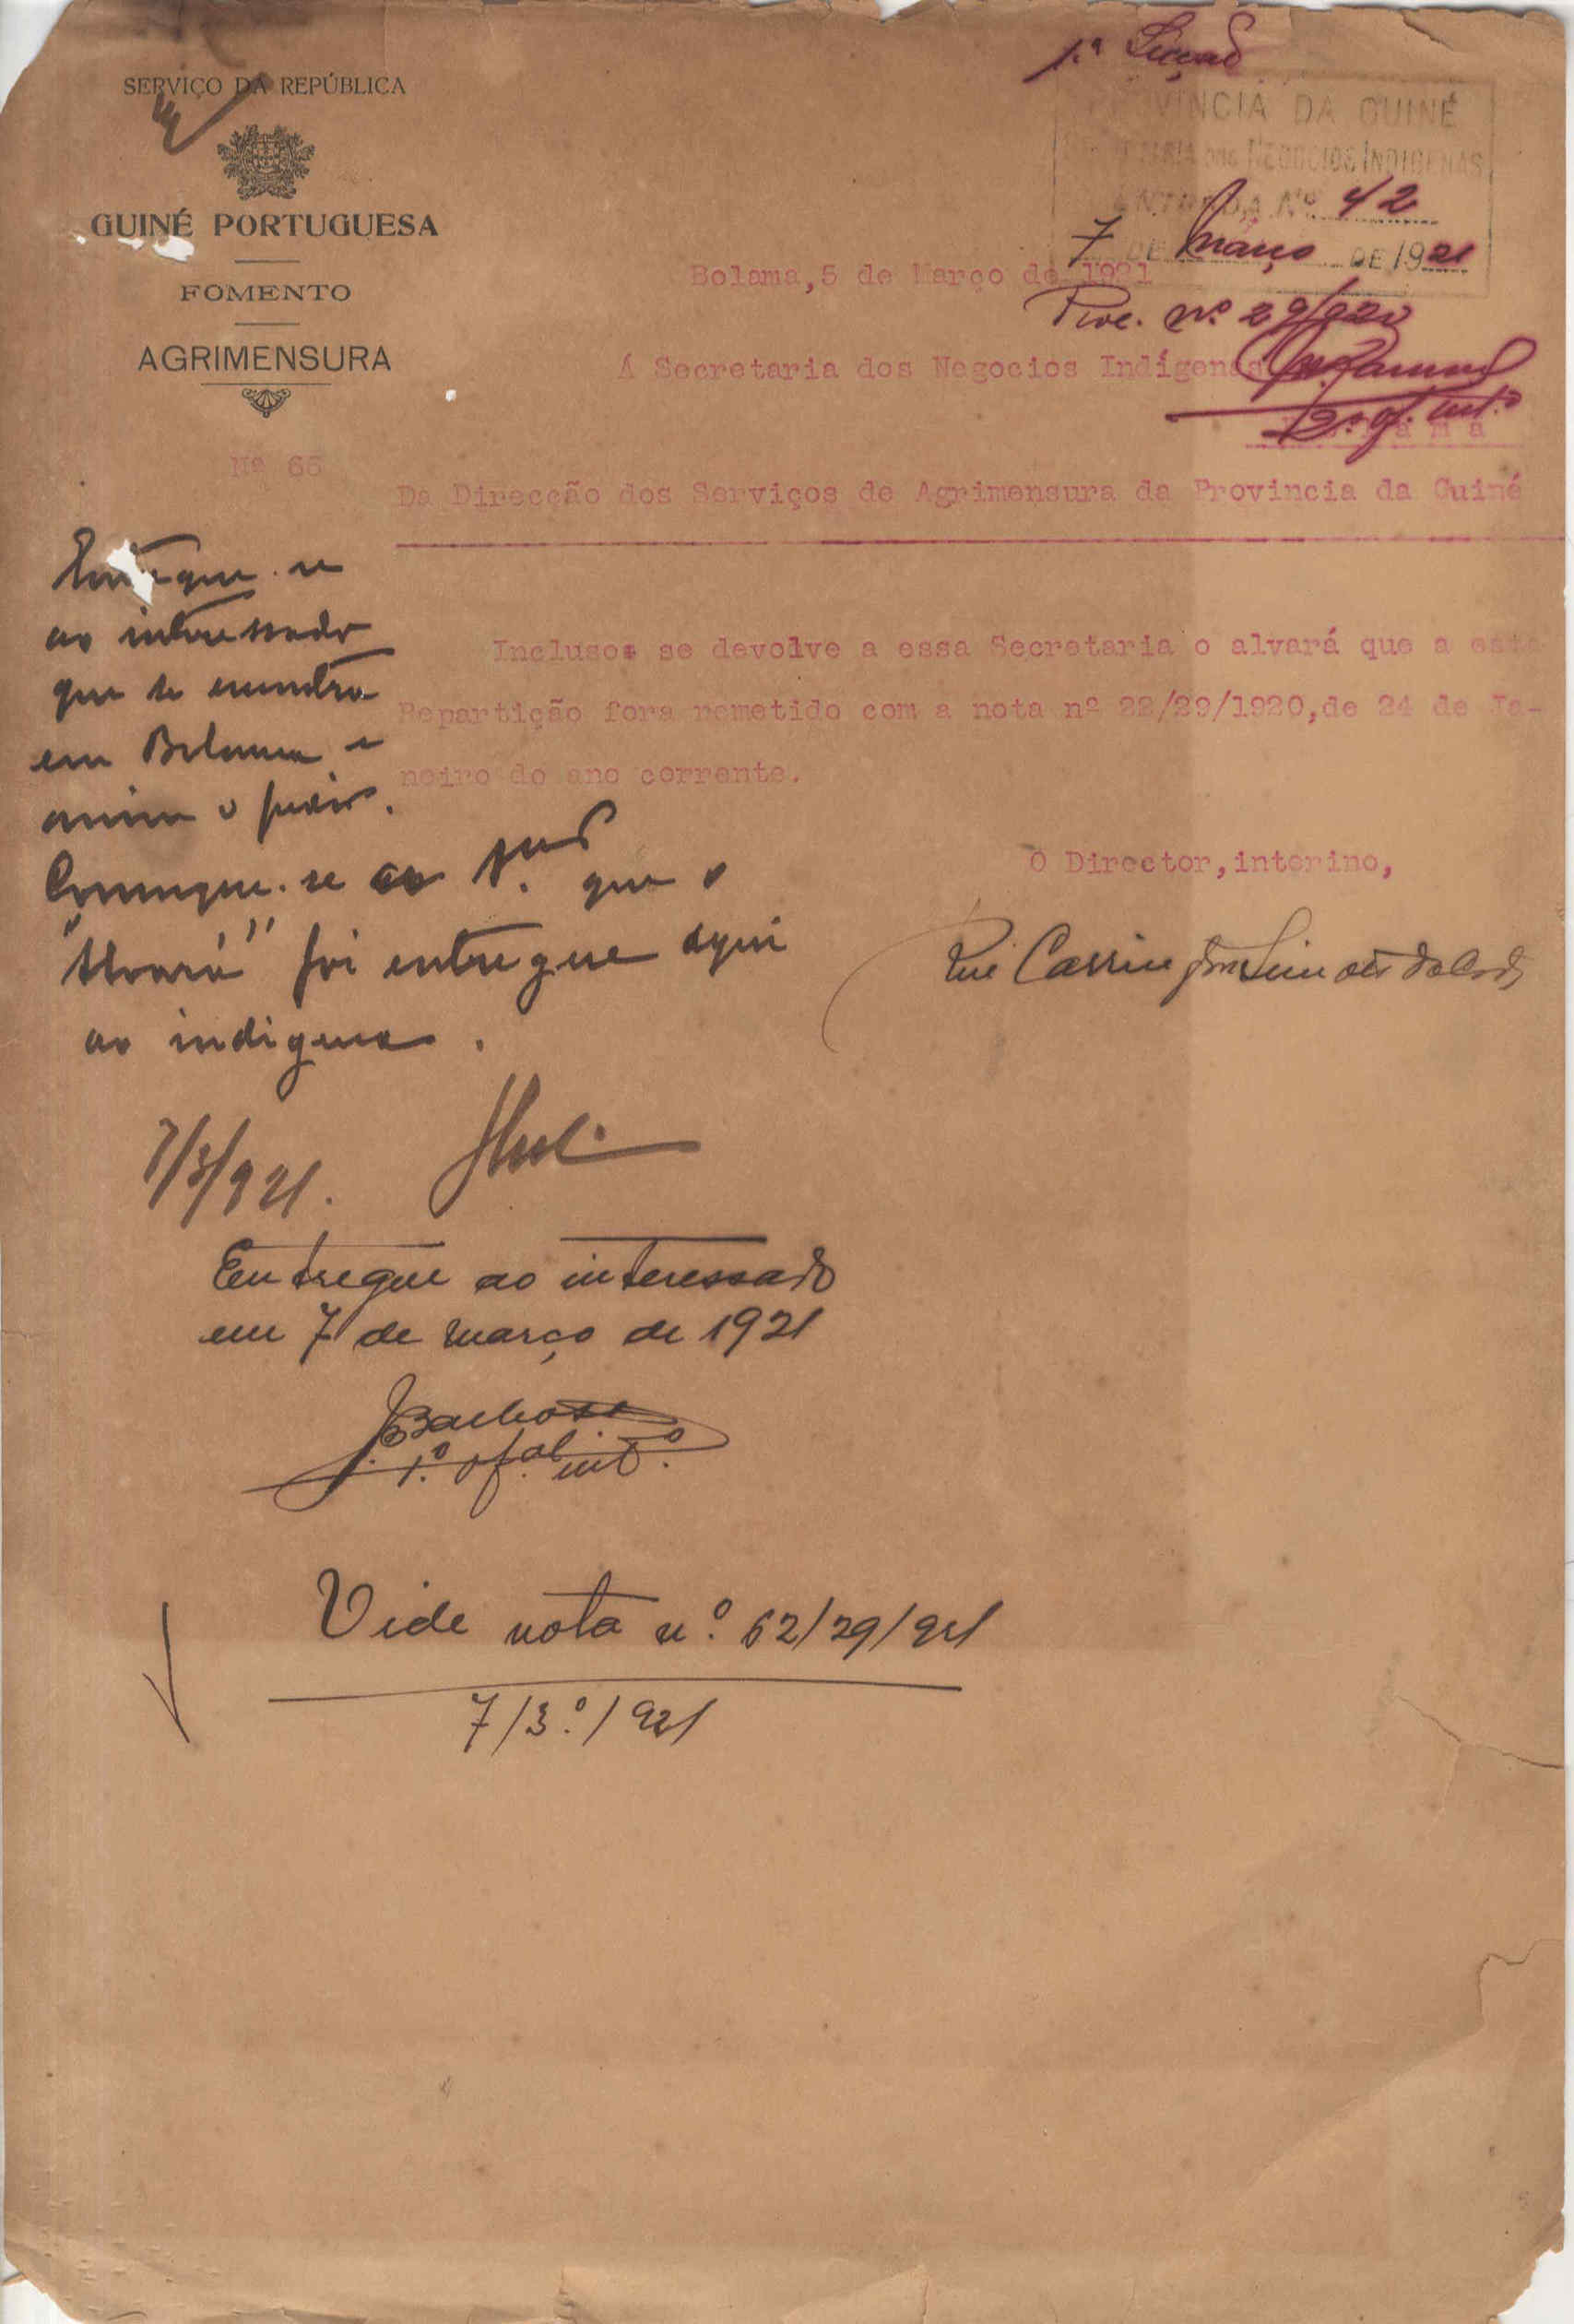 1.ª Secção
SERVIÇO DA REPÚBLICA
GUINÉ PORTUGUESA
FOMENTO
AGRIMENSURA
Nº 65
PROVINCIA DA GUINÉ
SECRETARIA DOS NEGOCIOS INDIGENAS
ENTRADA Nº 42
7 DE Março DE 1921
Proc. nº 29/920
2.º of. int.º
Bolama,5 de Março de 1921
Á Secretaria dos Negocios Indígenas
Bolama
Da Direcção dos Serviços de Agrimensura da Provincia da Guiné
Incluso se devolve a essa Secretaria o alvará que a esta
Repartição fora remetido com a nota nº 22/29/1920,de 24 de Ja-
neiro do ano corrente.
O Director,interino,
Entregue-se
ao interessado
que se encontra
em Bolama e
assim o pediu.
Comunique-se ao que o
"Alvará" foi entregue aqui
ao indigena.
7/3/921.
Entregue ao interessado
em 7 de março de 1921
JBarbosa
1.º of.al int.º
Vide nota n.º 62/29/921
7/3.º/921